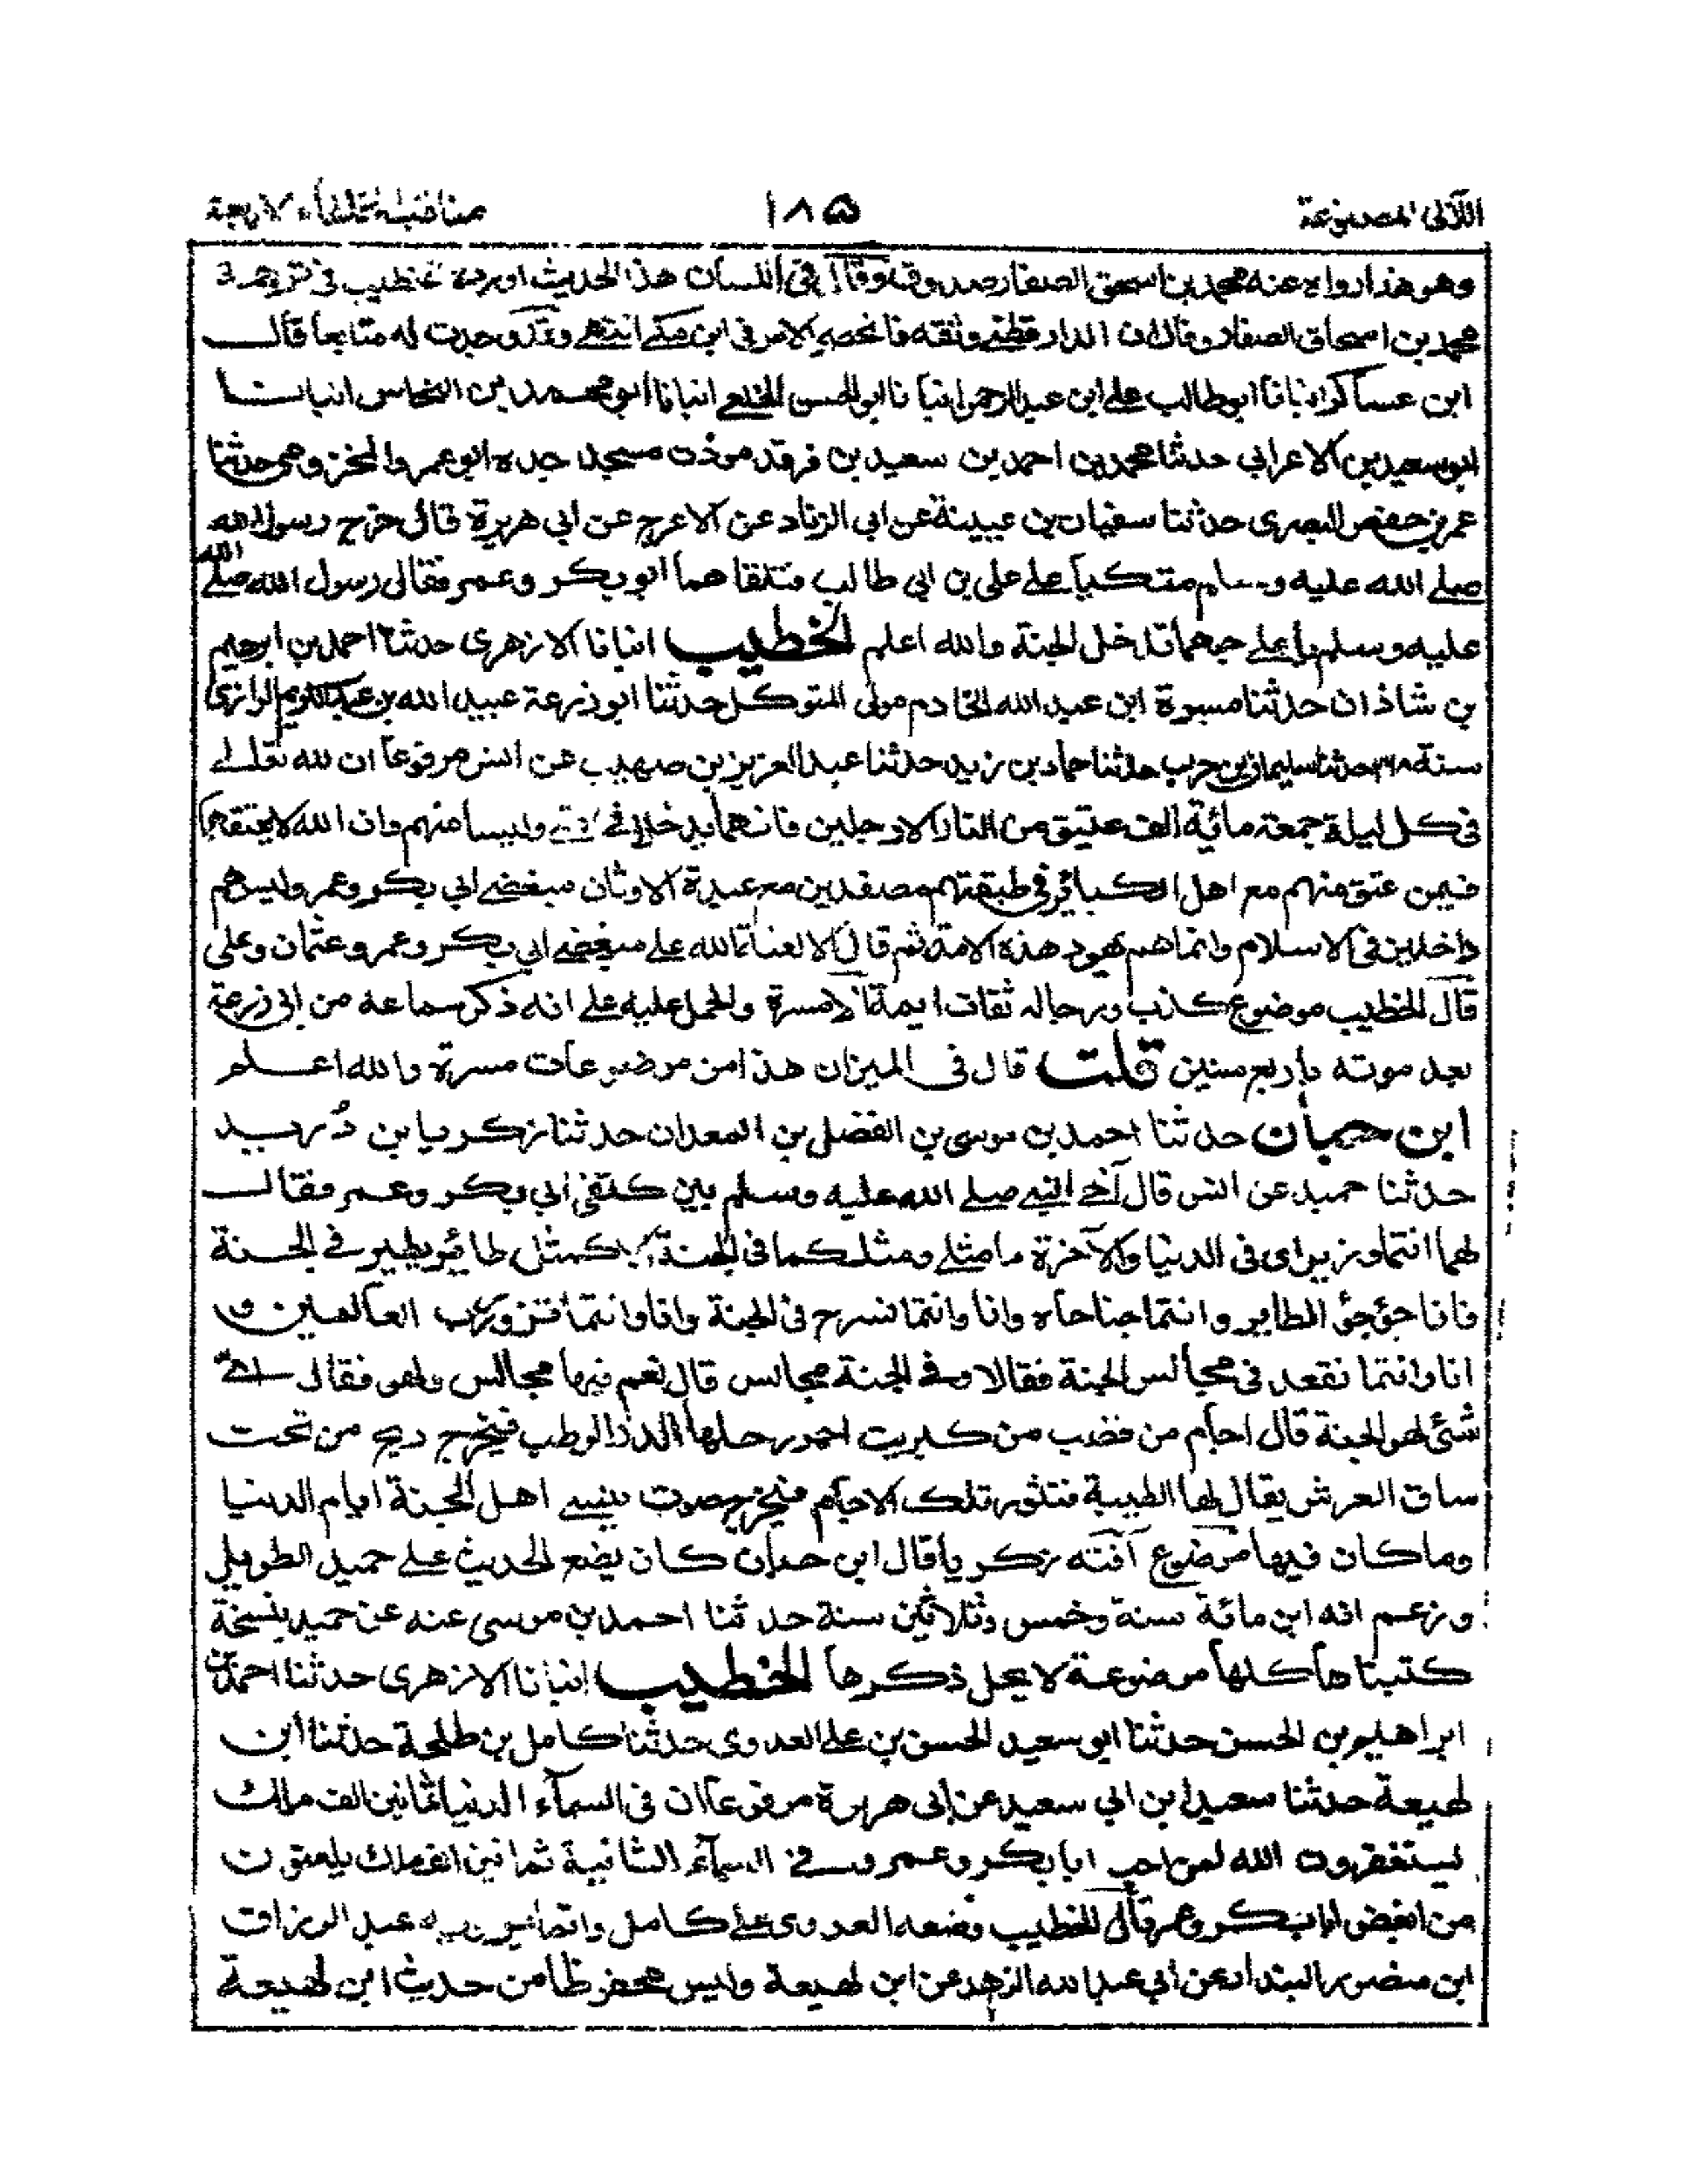 اللآلی المصنوعة ۱۸۵ مناقب الخلفاء الاربعة
وهو هذا رواه عنه محمد بن اسحق الصفار صدوق وقال فی اللسان هذا الحدیث اورده الخطیب فی ترجمة
محمد بن اسحاق الصفار وقال ان الدارقطنی وثقه فانحصر الامر فی ابن مکی انتهی وقد وجدت له متابعا قال
ابن عساکر انبانا ابوطالب علی ابن عبد الرحمن انبا نا ابو الحسن الخلعی انبانا ابو محمد بن النحاس انبانا
ابو سعید بن الاعرابی حدثنا محمد بن احمد بن سعید بن فرقد موذن مسجد جده ابو عمرو المخزومی حدثنا
عمر بن حفص البصری حدثنا سفیان بن عیینة عن ابی الزناد عن الاعرج عن ابی هریرة قال خرج رسول الله
صلی الله علیه وسلم متکیا علی علی بن ابی طالب فتلقا هما ابو بکر وعمر فقال رسول الله صلی الله
علیه وسلم یا علی حبهما تدخل الجنة والله اعلم الخطیب انبانا الازهری حدثنا احمد بن ابرهیم
بن شاذان حدثنا مسرة ابن عبد الله الخادم مولی المتوکل حدثنا ابو زرعة عبید الله بن عبد الکریم الرازی
سنة حدثنا سلیمان بن حرب حدثنا حماد بن زید حدثنا عبد العزیز بن صهیب عن انس مرفوعا ان لله تعالی
فی کل لیلة جمعة مائة الف عتیق من النار الا رجلین فانهما یدخلان فی ولیسا منهم وان الله لا یعتقهما
فیمن عتق منهم مع اهل الکبائر فی طبقتهم مصفدین مع عبدة الاوثان مبغضی ابی بکر وعمر ولیس هم
داخلین فی الاسلام وانما هم یهود هذه الامة ثم قال الا لعنة الله علی مبغضی ابی بکر وعمر وعثمان وعلی
قال الخطیب موضوع کذب ورجاله ثقات ایمة الا مسرة والحمل علیه علی انه ذکر سماعه من ابی زرعة
بعد موته بأربع سنین قلت قال فی المیزان هذا من موضوعات مسرة والله اعلم
ابن حبان حدثنا احمد بن موسی بن الفضل بن المعدان حدثنا زکریا بن دُرید
حدثنا حمید عن انس قال آخی النبی صلی الله علیه وسلم بین کتفی ابی بکر وعمر فقال
لهما انتما وزیرای فی الدنیا والآخرة ما مثلی ومثلکما فی الجنة الا کمثل طائر یطیر فی الجنة
فانا جؤجؤ الطایر وانتما جناحاه وانا وانتما نسرح فی الجنة وانا وانتما نزور رب العالمین و
انا وانتما نقعد فی مجالس الجنة فقالا وفی الجنة مجالس قال نعم فیها مجالس ولهو فقال ای
شئ لهو الجنة قال اجام من قضب من کبریت احمر حملها الدر الرطب فیخرج ریح من تحت
ساق العرش یقال لها الطیبة فتثور تلک الاجام فیخرج صوت ینسی اهل الجنة ایام الدنیا
وما کان فیها موضوع آفته زکریا قال ابن حبان کان یضع الحدیث علی حمید الطویل
وزعم انه ابن مائة سنة وخمس وثلاثین سنة حدثنا احمد بن موسی عنه عن حمید بنسخة
کتبناها کلها موضوعة لا یحل ذکرها الخطیب انبانا الازهری حدثنا احمد بن
ابراهیم بن الحسن حدثنا ابو سعید الحسن بن علی العدوی حدثنا کامل بن طلحة حدثنا ابن
لهیعة حدثنا سعید ابن ابی سعید عن ابی هریرة مرفوعا ان فی السماء الدنیا ثمانین الف ملک
یستغفرون الله لمن احب ابا بکر وعمر وفی السماء الثانیة ثمانین الف ملک یلعنون
من ابغض ابا بکر وعمر قال الخطیب وضعه العدوی علی کامل وانما یرویه عبد الرزاق
ابن منصور البندار عن ابی عبد الله الزاهد عن ابن لهیعة ولیس محفوظا من حدیث ابن لهیعة